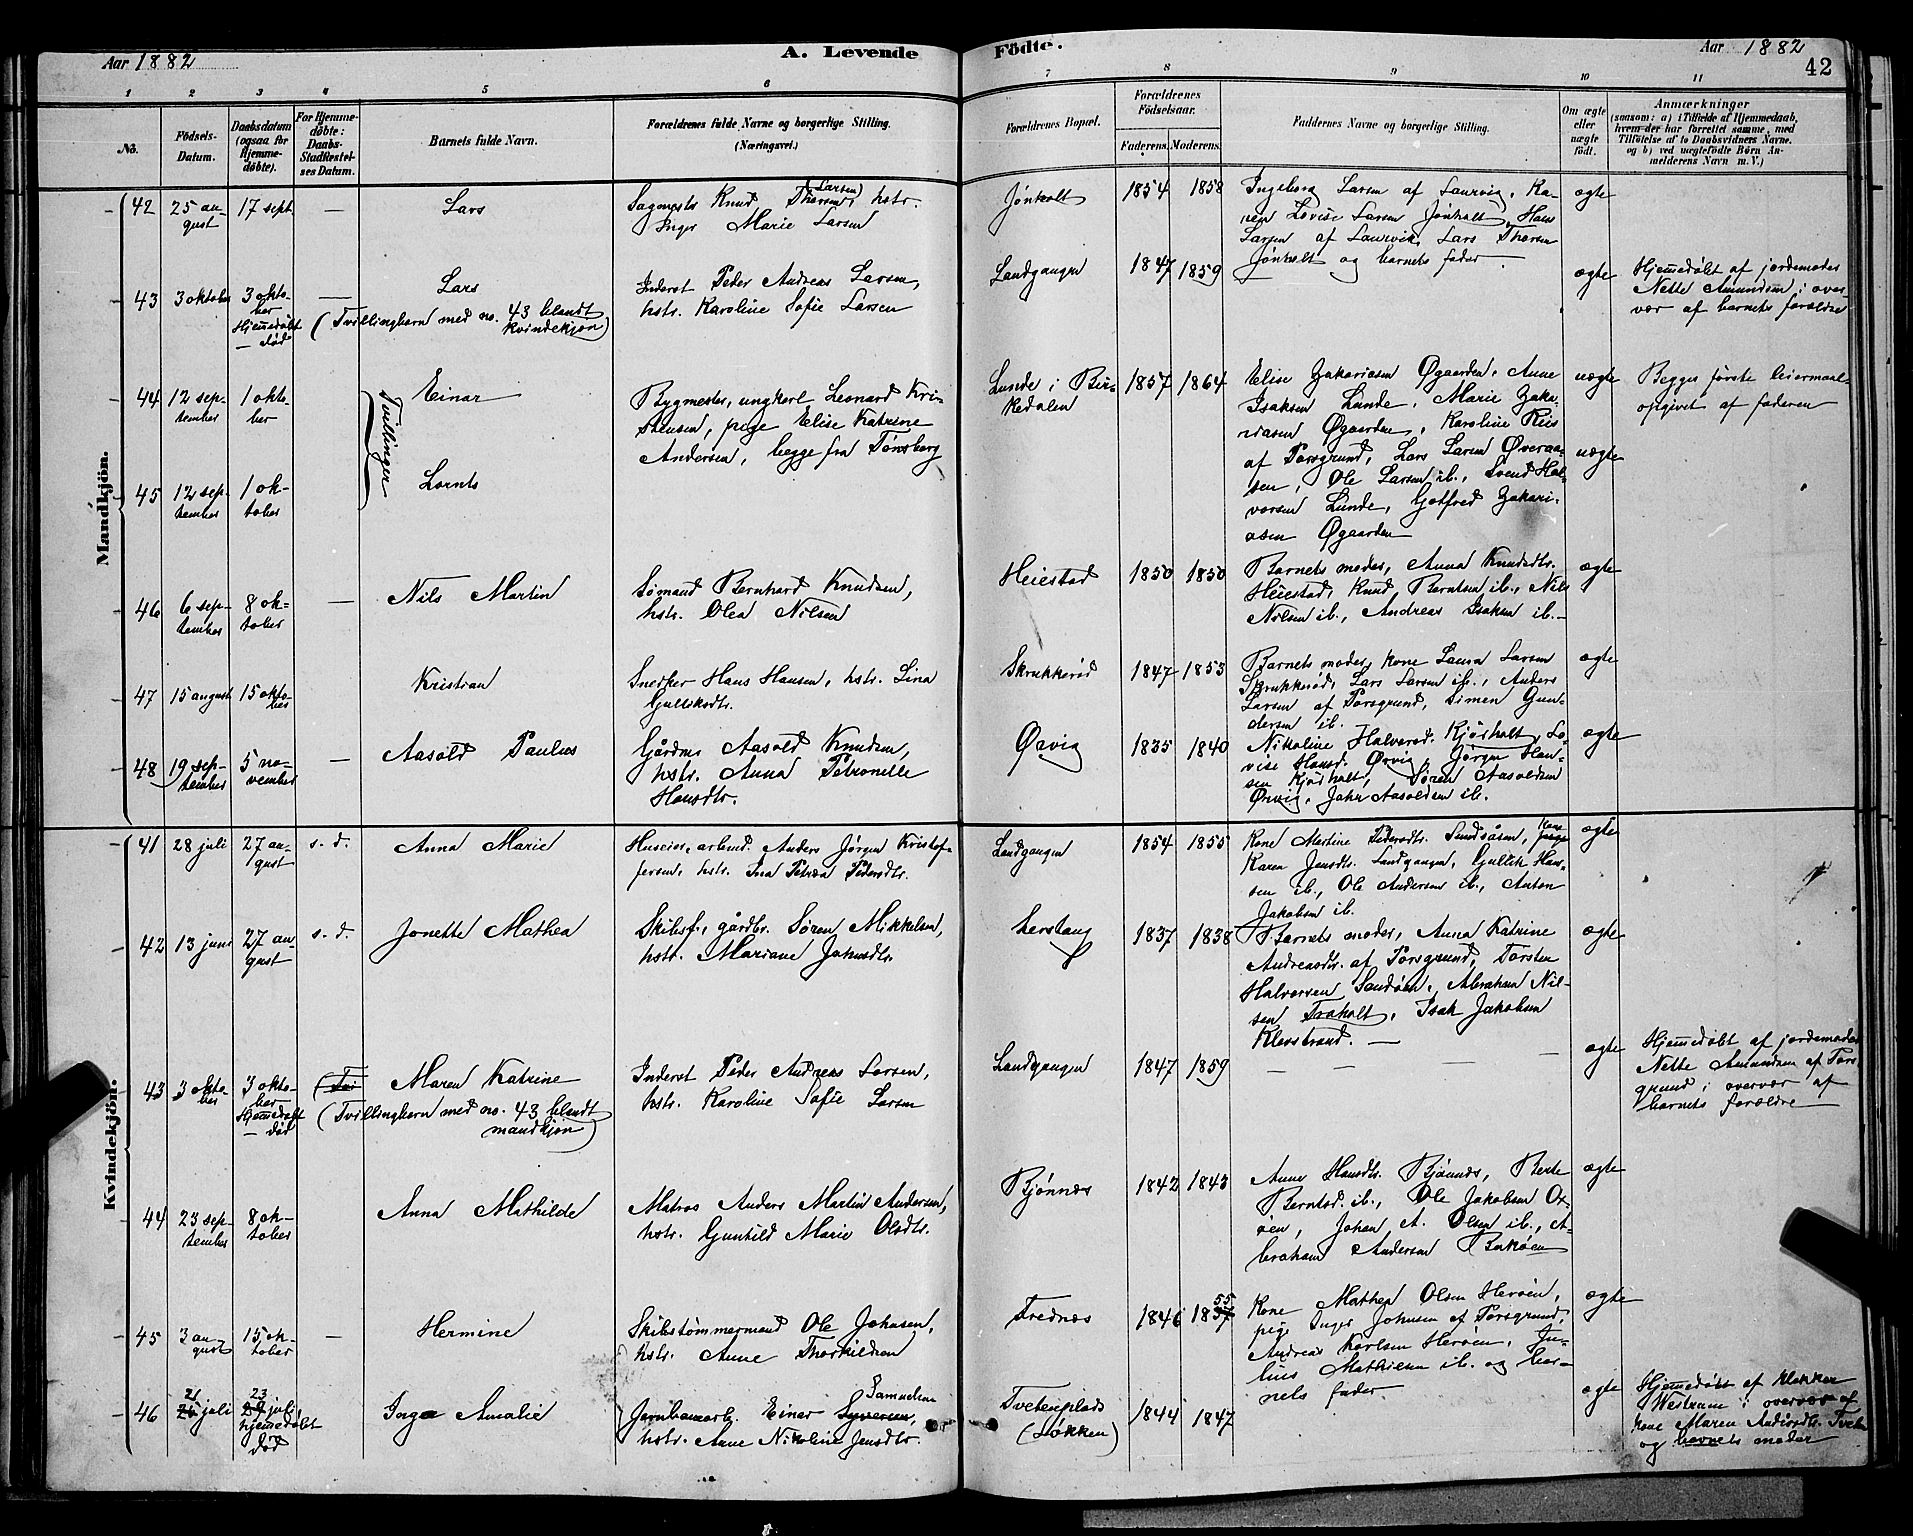 Aar 1882
A. Levende
Födte.
Aar 1882
42
1 2 3 4 5 6 7 8 9 10 11
No.
Födsels-
Datum.
Daabsdatum
(ogsaa for
Hjemme-
døbte).
For Hjemme-
døbte:
Daabs-
Stadfæstel-
ses Datum.
Barnets fulde Navn.
Forældrenes fulde Navne og borgerlige Stilling.
(Næringsvei.)
Forældrenes Bopæl.
Forældrenes
Födselsaar.
Faderens. Moderens.
Faddernes Navne og borgerlige Stilling.
Om ægte
eller
uægte
födt.
Anmærkninger
(saasom: a) i Tilfælde af Hjemmedaab,
hvem der har forrettet samme, med
Tilföielse af to Daabsvidners Navne.
og b) ved uægtefödte Börn An-
melderens Navn m. V.)
Mandkjön.
42
25 au-
gust
17 sept.
—
Lars
(Larsen)
Sagmester Knud Thorsen, hstr.
Inger Marie Larsen
Jønholt
1854
1858
Ingeborg Larsen af Laurvig, Ka-
ren Lovise Larsen Jønholt, Hans
Larsen af Laurvik, Lars Thorsen
Jønholt og barnets fader.
ægte
43
3 oktober
3 okto-
ber
Hjemmedøbt
— død
—
Lars
(Tvillingbarn med no. 43 blandt
kvindekjøn)
Inderst Peder Andreas Larsen,
hstr. Karoline Sofie Larsen
Landgangen
1847
1859
ægte
Hjemmedøbt af jordemoder
Nette Amundsen i over-
vær af barnets forældre
44
12 sep-
tember
1 okto-
ber
Tvillinger
Einar
Bygmester, ungkarl Leonard Kri-
stensen, pige Elise Katrine
Andersen, begge fra Tønsberg
Lunde i Bir-
kedalen
1857
1864
Elise Zakariasen Øgaarden, Anne
Isaksen Lunde, Marie Zaka-
riasen Øgaarden, Karoline Riis
af Porsgrund, Lars Larsen Øveraa-
sen, Ole Larsen ib., Svend Hal-
vorsen Lunde, Gotfred Zakari-
asen Øgaarden
uægte
Begges første leiermaal
opgivet af faderen
45
12 sep-
tember
1 ok-
tober
Lornts
uægte
46
6 sep-
tember
8 ok-
tober
—
Nils Martin
Sømand Bernhard Knudsen,
hstr. Olea Nilsen
Heiestad
1850
1850
Barnets moder, Anna Knudsdtr.
Heiestad, Knud Berntsen ib., Nils
Nilsen ib., Andreas Isaksen ib.—
ægte
47
15 august
15 okto-
ber
Kristian
Snedker Hans Hansen, hstr. Lina
Gulliksdtr.
Skrukkerød
1847
1853
Barnets moder, kone Laura Larsen
Skrukkerød, Lars Larsen ib., Anders
Larsen af Porsgrund, Simen Gun-
dersen ib.
ægte
48
19 sep-
tember
5 no-
vember
—
Aasold Paulus
Gårdbr. Aasold Knudsen,
hstr. Anna Petronelle
Hansdtr.
Ørvig
1835
1840
Nikoline Halvorsd. Kjørholt, Lo-
vise Hansd. Ørvig, Jørgen Han-
sen Kjørholt, Søren Aasoldsen
Ørvig, Jahn Aasoldsen ib.
ægte
Kvindekjön.
41
28 juli
27 au-
gust
s. d.
Anna Marie
Huseier, arbmd. Anders Jørgen Kristof-
fersen, hstr. Ina Petrea Pedersdtr.
Landgangen
1854
1855
Kone Martine Pedersdtr. Sundsåsen, kone
Karen Jensdtr. Landgangen, Gullik Han-
sen ib., Ole Andersen ib., Anton
Jakobsen ib.
ægte
42
13 juni
27 au-
gust
s. d.
Jonette Mathea
Skibsf., gårdbr. Søren Mikkelsen,
hstr. Mariane Johnsdtr.
Lerstang
1837
1838
Barnets moder, Anna Katrine
Andreasdtr. af Porsgrund, Torsten
Halvorsen Sandøen, Abraham Nil-
sen Traholt, Isak Jakobsen
Klevstrand. —
ægte
43
3 okto-
ber
3 okto-
ber
Hjemmedøbt
— død
(Tvi
Maren Katrine
(Tvillingbarn med no. 43 blandt
mandkjøn)
Inderst Peder Andreas Larsen,
hstr. Karoline Sofie Larsen
Landgangen
1847
1859
— — — —
ægte
Hjemmedøbt af jordemoder
Nette Amundsen af Pors-
grund i overvær af
barnets forældre
44
23 sep-
tember
8 ok-
tober
Anna Mathilde
Matros Anders Martin Andersen,
hstr. Gunhild Marie Olsdtr.
Bjønnes
1842
1843
Anne Hansdtr. Bjønnes, Berte
Berntsd. ib., Ole Jakobsen Ox-
øen, Johan A. Olsen ib., A-
braham Andersen Birkøen
ægte
45
3 au-
gust
15 ok-
tober
—
Hermine
Skibstømmermand Ole Johnsen,
hstr. Anne Thorkildsen
Frednæs
1846
55
1857
Kone Mathea Olsen Herøen,
pige Inger Johnsen af Porsgrund,
Andreas Karlsen Herøen, Ju-
lius Mathisen ib. og bar-
nets fader.
ægte
46
21
26 juli
23
27 juli
hjemmedøbt
død
Inga Amalie
Samuelsen
Jernbanearb. Einar Syversen,
hstr. Anne Nikoline Jensdtr.
Tvetenplads
(Løkken)
1844
1847
ægte
Hjemmedøbt af klokker
Westrum i overvær af
kone Maren Andersdtr. Tveten
og barnets moder